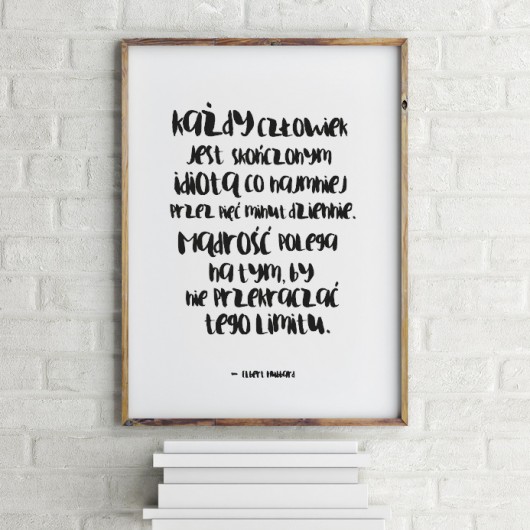 każdy człowiek
jest skończonym
idiotą co najmniej
przez pięć minut dziennie.
Mądrość polega
na tym, by
nie przekraczać
tego limitu.
- Elbert Hubbard